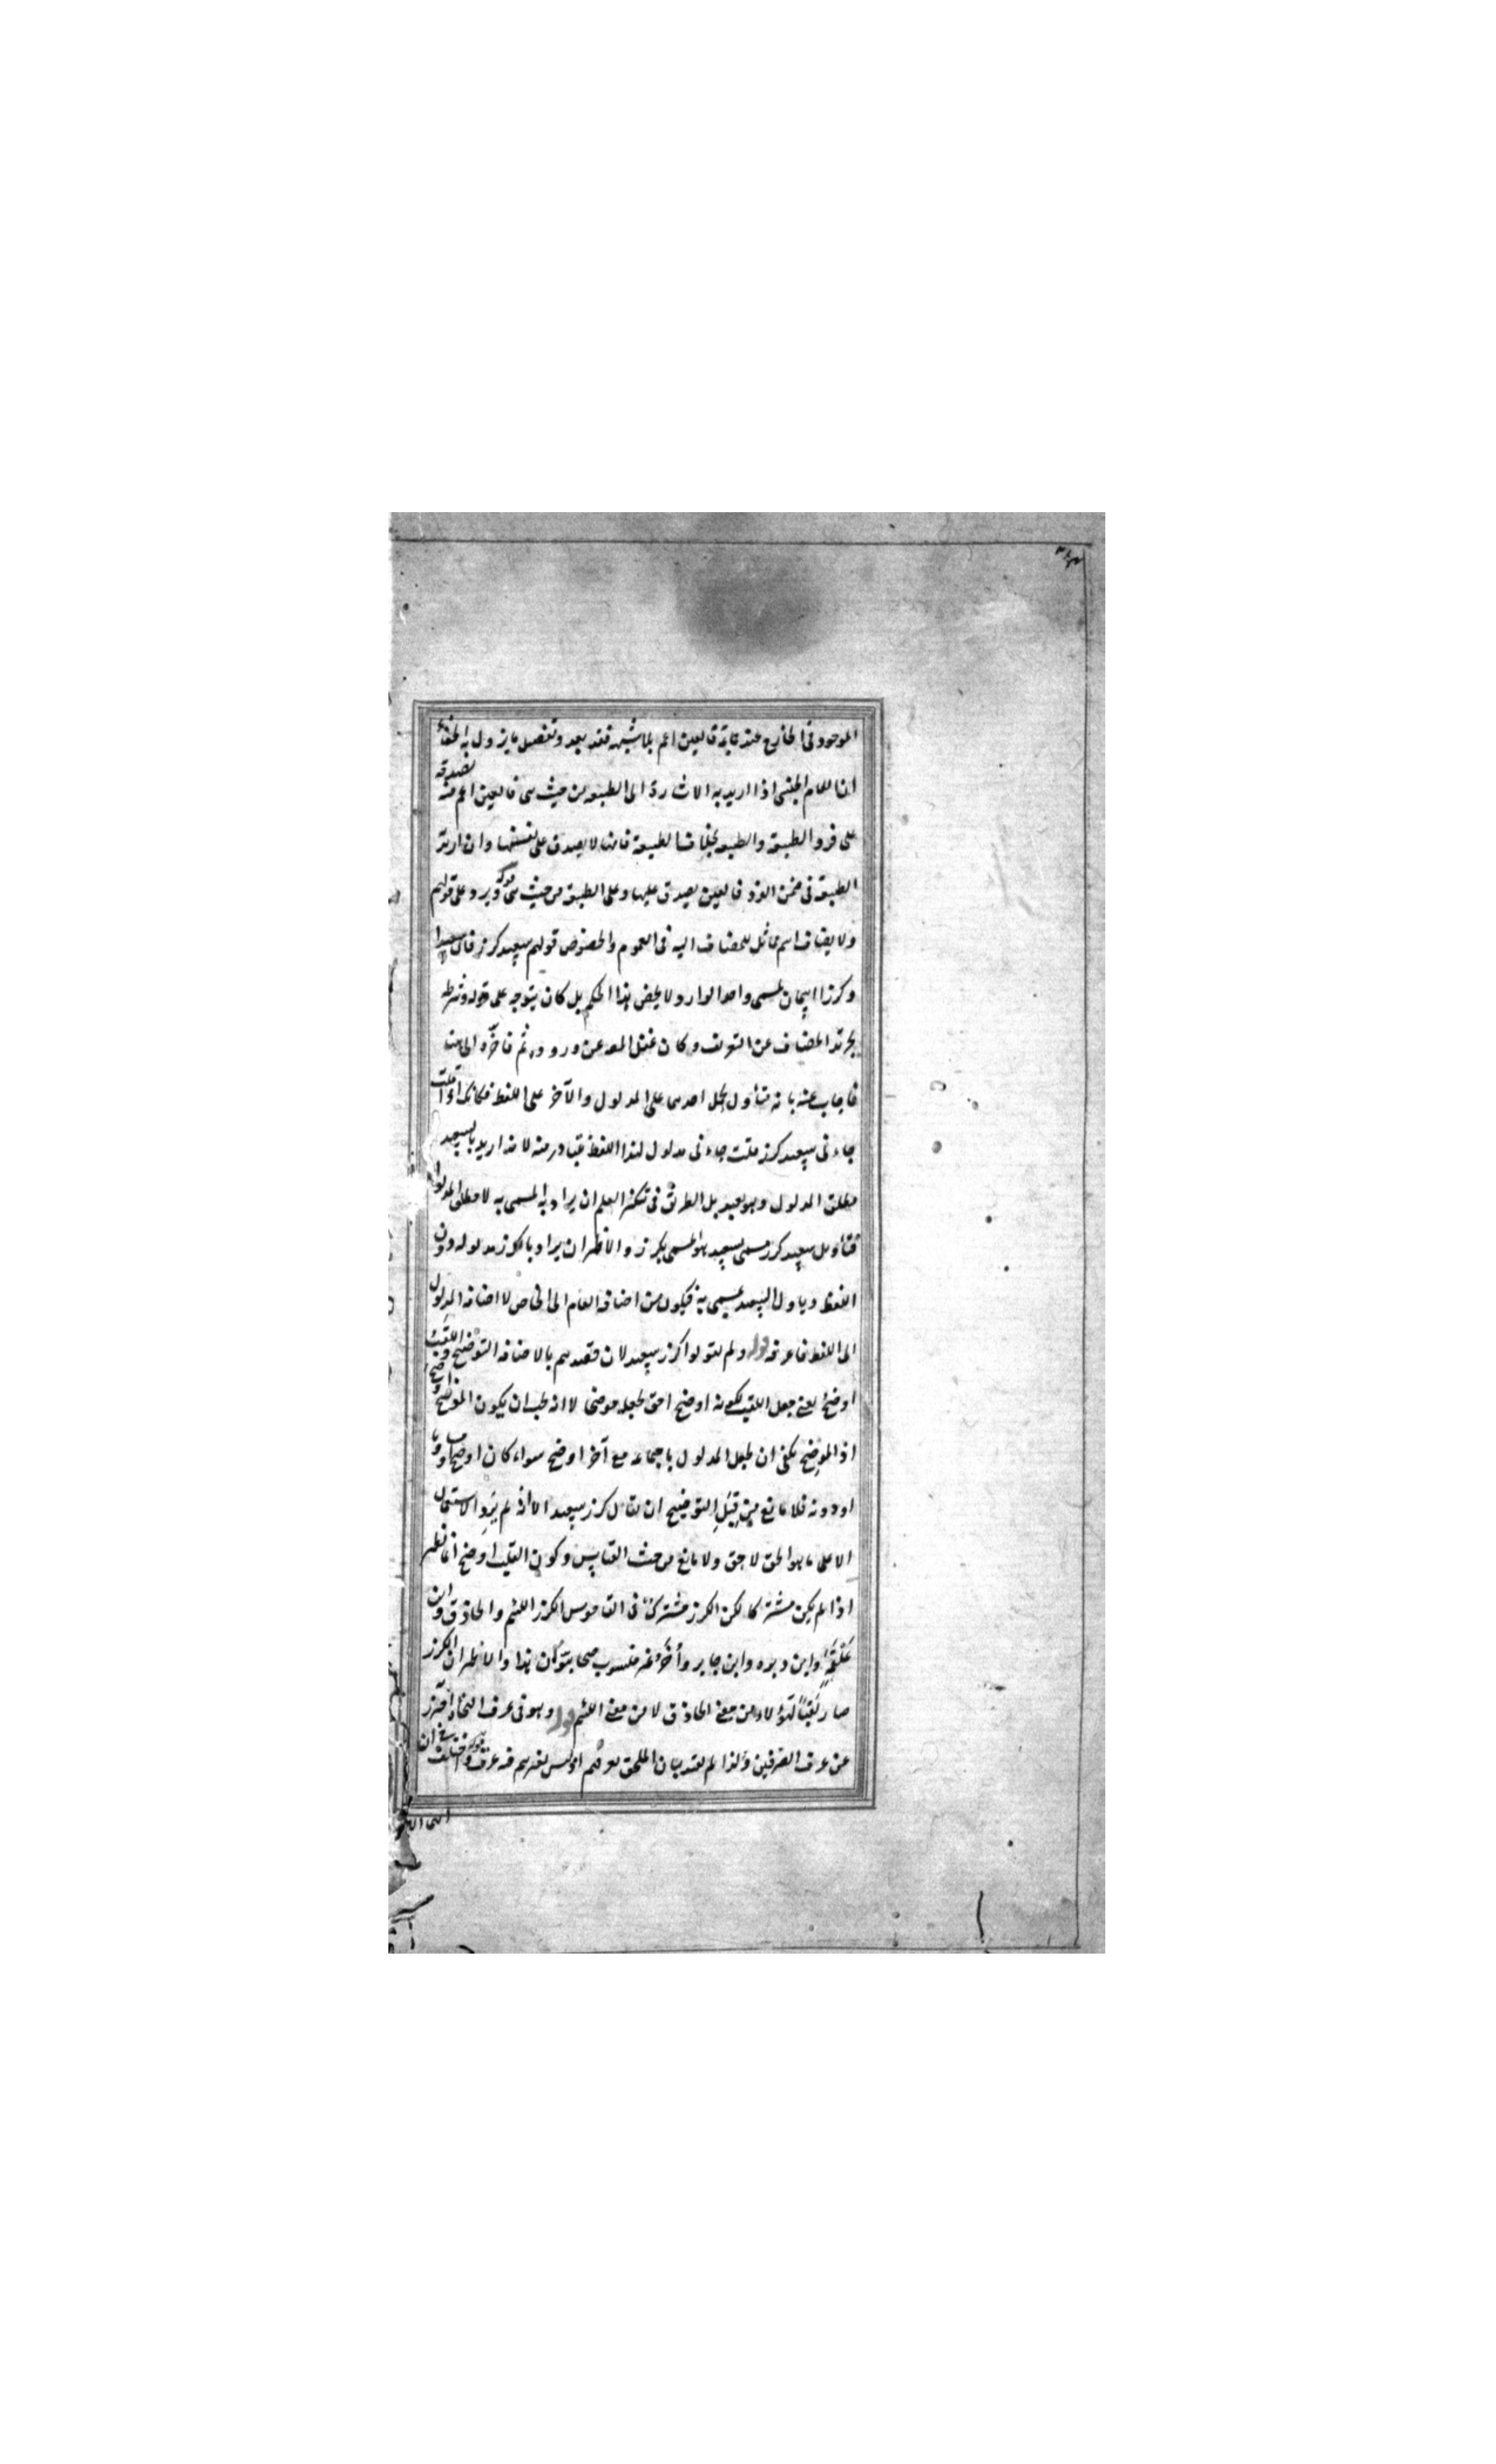 الموجود في الخارج عند عامة فالعين اعم بلا شبهة فقد بعد وتفصيل ما يزول به الخفاء
ان العام الجنسي اذا اريد به الاشارة الى الطبيعة من حيث هي فالعين اعم منه لصدقه
على فرد الطبيعة والطبيعة بخلاف الطبيعة فانها لا يصدق على نفسها وان اريد
الطبيعة في ضمن الفرد فالعين يصدق عليها وعلى الطبيعة من حيث هي قوله ويرد على قولهم
ولا يضاف اسم مماثل للمضاف اليه في العموم والخصوص قولهم سعيد كرز فان سعيدا
وكرزا اسمان لمسمى واحد الوارد ولا يخص بهذا الحكم بل كان يتوجه على قوله وشرطه
تجريد المضاف عن التعريف وكان غفل المص عن وروده ثم فاخره الى هنا
فاجاب عنه بانه متأول بحمل احدهما على المدلول والآخر على اللفظ فكانك اذا قلت
جاءني سعيد كرز قلت جاءني مدلول لهذا اللفظ يتبادر منه لانه اريد بالسعيد
مطلق المدلول وهو بعيد بل الطريق في تنكير العلم ان يراد به المسمى به لا مطلق المدلول
فتأويل سعيد كرز مسمى سعيد هو المسمى بكرز والاظهر ان يراد بالكرز مدلوله دون
اللفظ ويأول السعيد بمسمى به فيكون من اضافة العام الى الخاص لا اضافة المدلول
الى اللفظ فاعرفه قوله ولم يقولوا كرز سعيد لان قصدهم بالاضافة التوضيح واللقب
اوضح يعني جعل اللقب لكونه اوضح احق بجعله موضحا لا انه يجب ان يكون الموضح اوضح
اذ الموضح يكفي ان يجعل المدلول باجتماعه مع آخر اوضح سواء كان اوضح او مساويا
او دونه فلا مانع من قبل التوضيح ان يقال كرز سعيد الا انه لم يرد الاستعمال
الا على ما هو الحق لا حق ولا مانع من حيث القياس وكون اللقب اوضح انما يظهر
اذا لم يكن مشتركا لكن الكرز مشترك في القاموس الكرز اللئيم والحاذق وابن
علقمة وابن وبره وابن جابر وآخر غير منسوب صحابيون هذا والاظهر ان الكرز
صار لقبا لهؤلاء من معنى الحاذق لا من معنى اللئيم قوله وهو في عرف النحاة احترز
عن عرف الصرفيين ولذا لم يقيد بيان الملحق بعرفهم اذ ليس لغيرهم فيه عرف